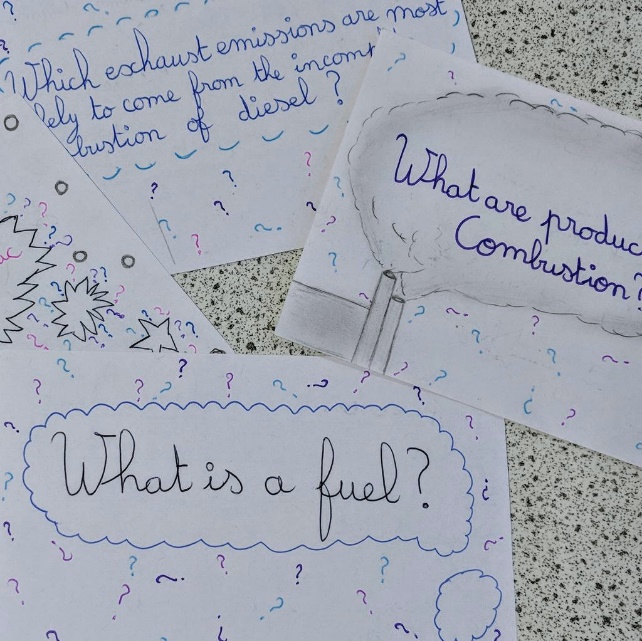 Which exhaust emissions are most
lely to come from the incomp
bustion of diesel ?
What are produc
Combustion?
ac
What is a fuel?